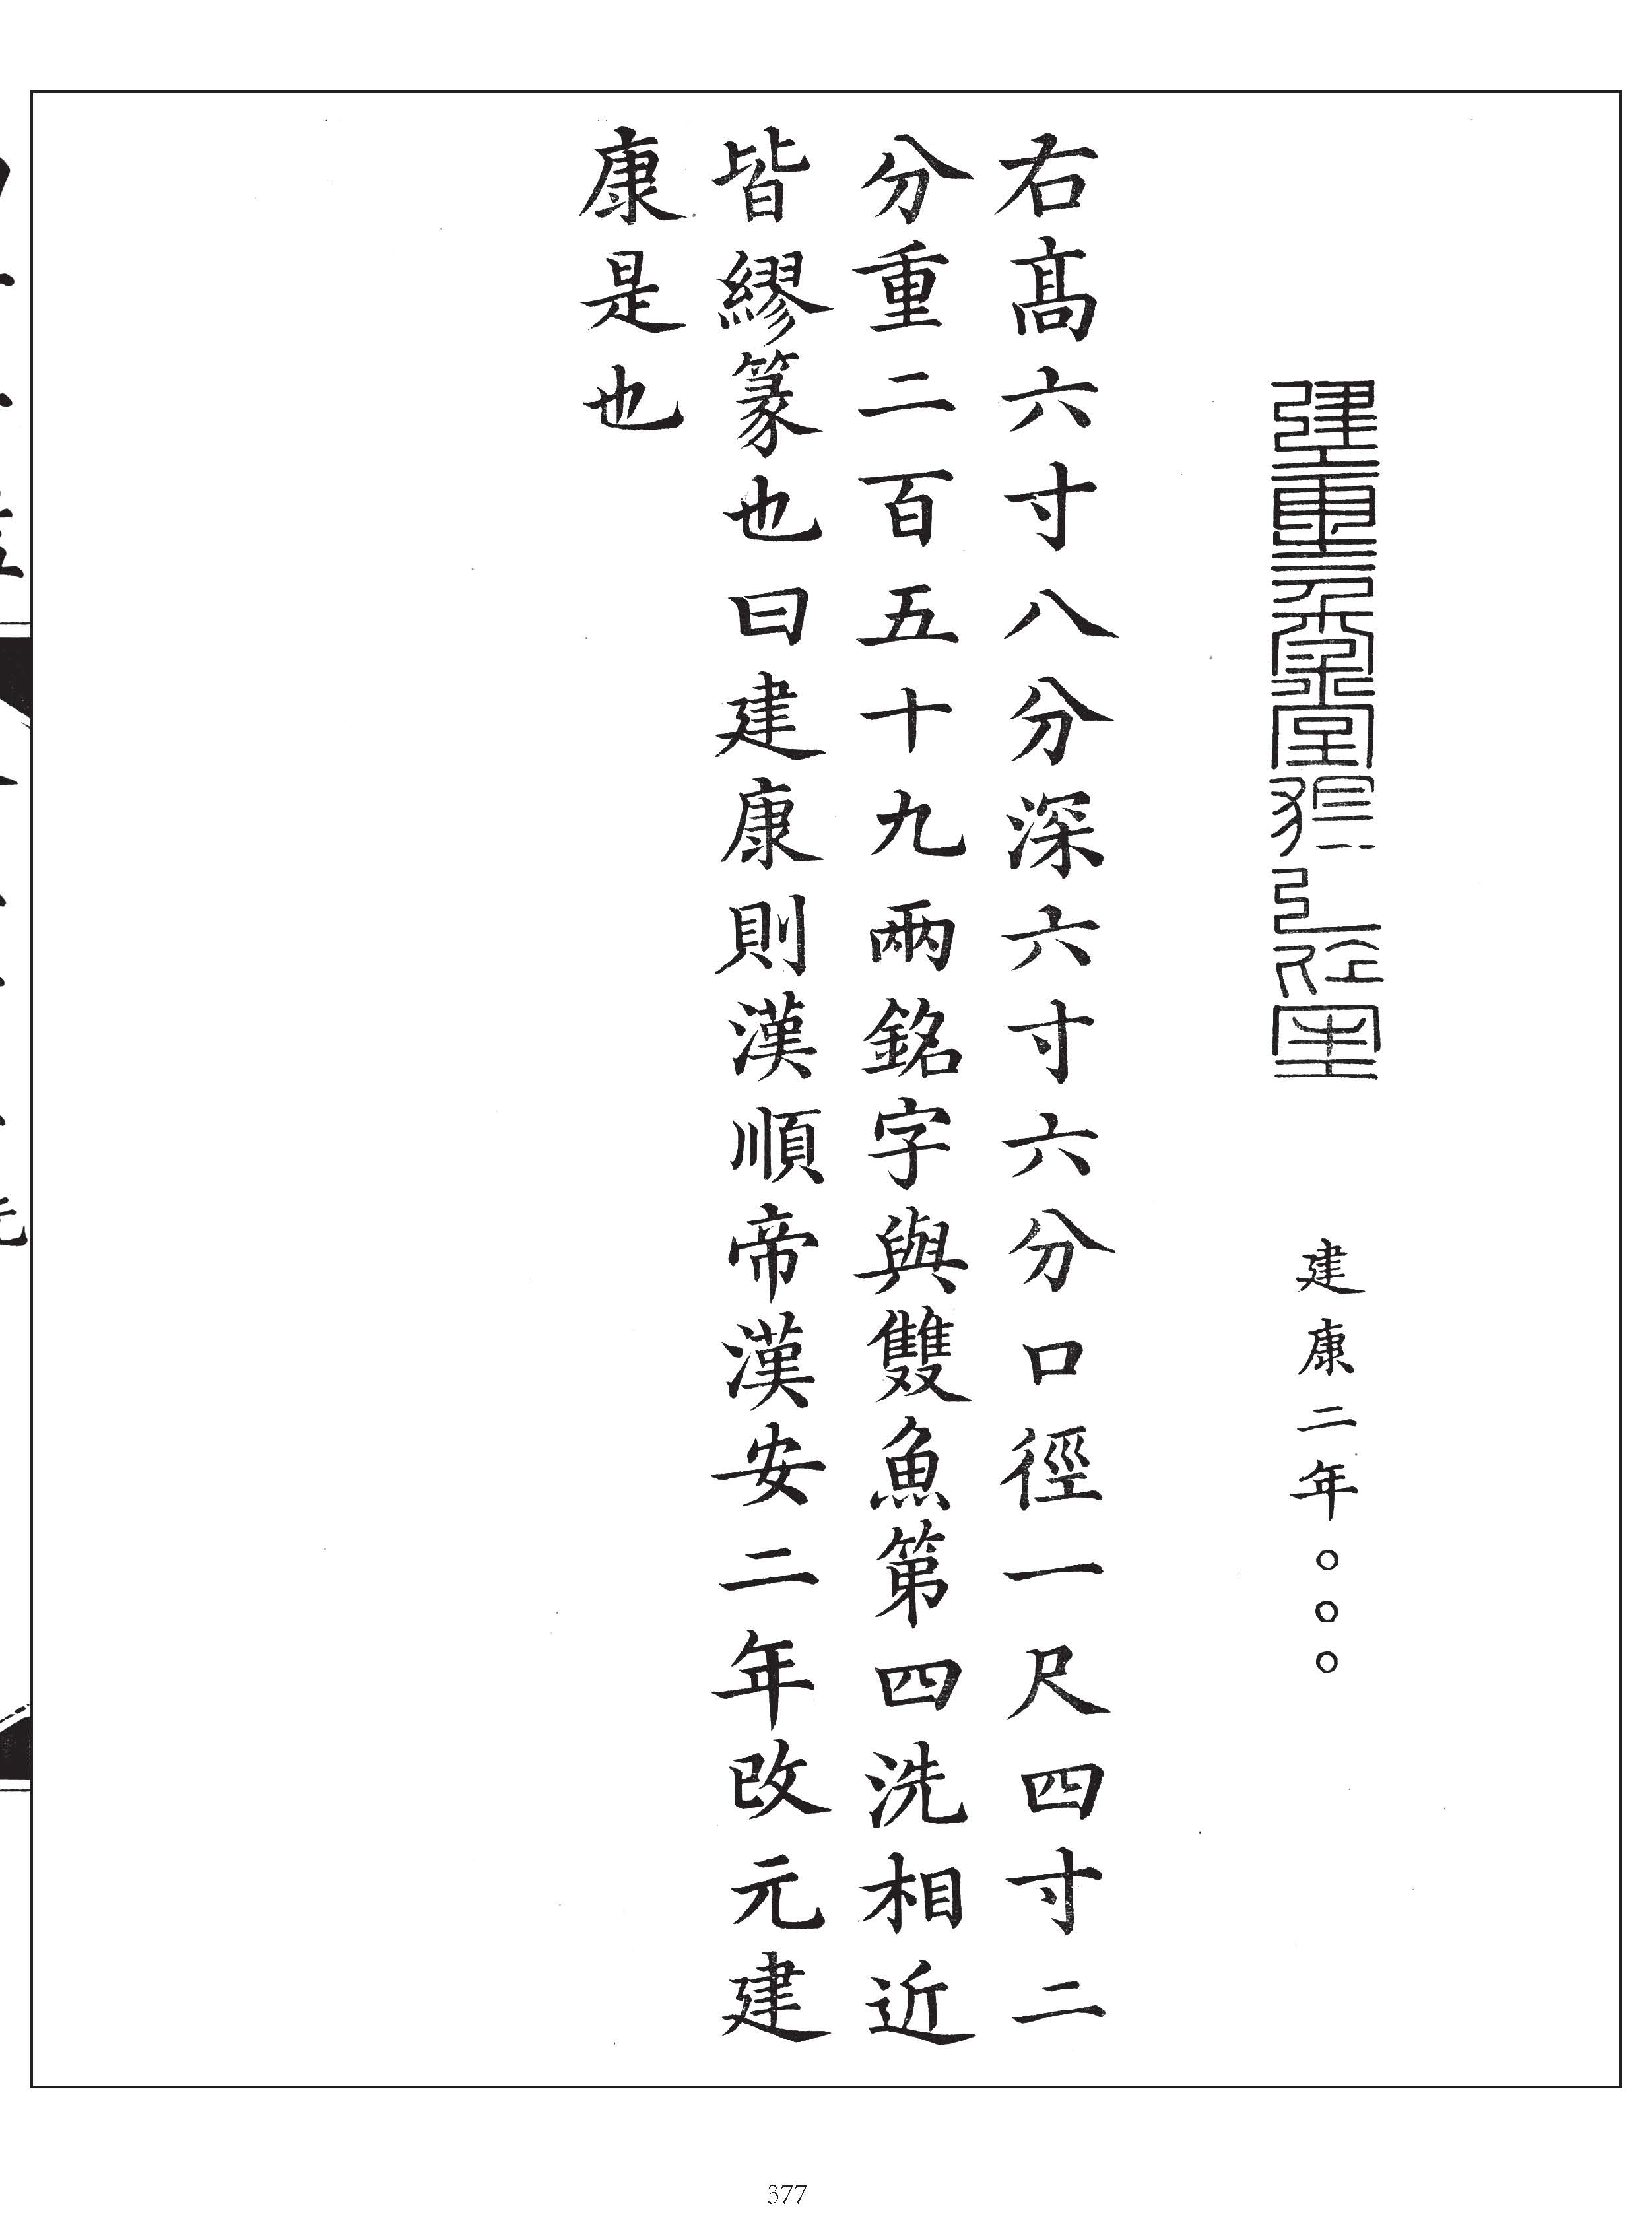 建康二年○○○
右髙六寸八分深六寸六分口徑一尺四寸二
分重二百五十九兩銘字與雙魚第四洗相近
皆繆篆也曰建康則漢順帝漢安二年改元建
康是也
377